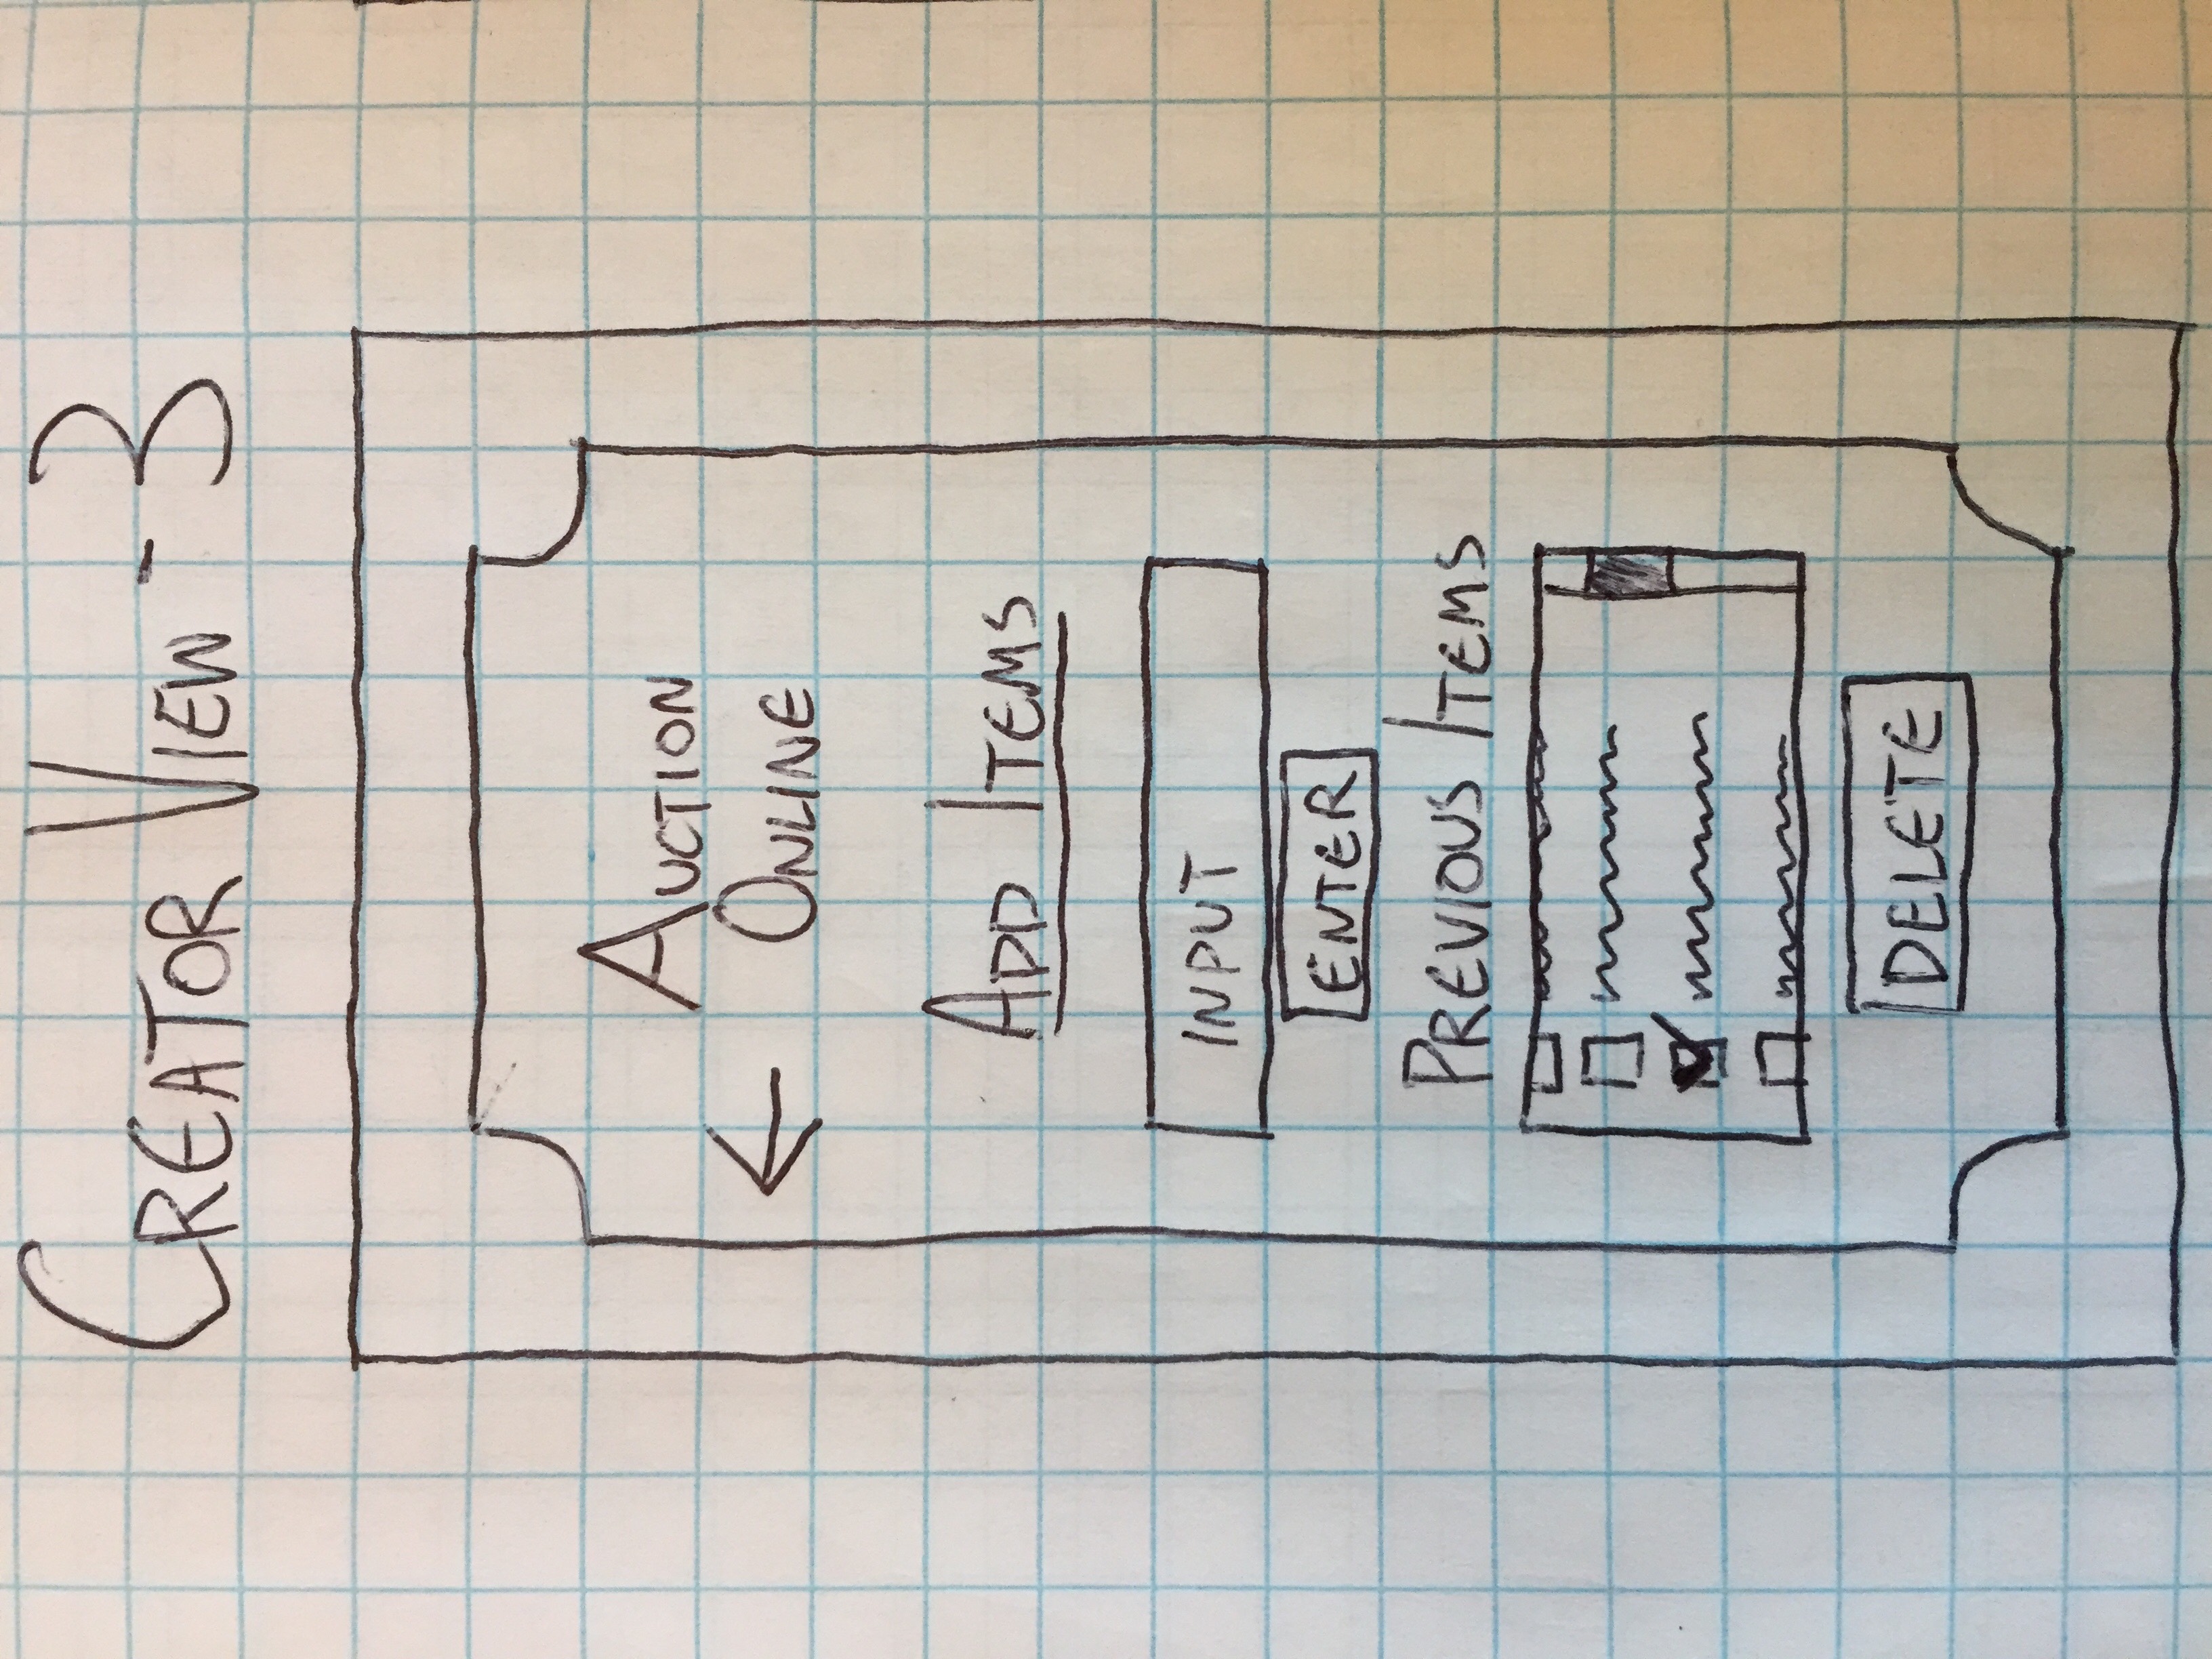 CREATOR VIEW - 3
AUCTION
ONLINE
ADD ITEMS
INPUT
ENTER
PREVIOUS ITEMS
DELETE